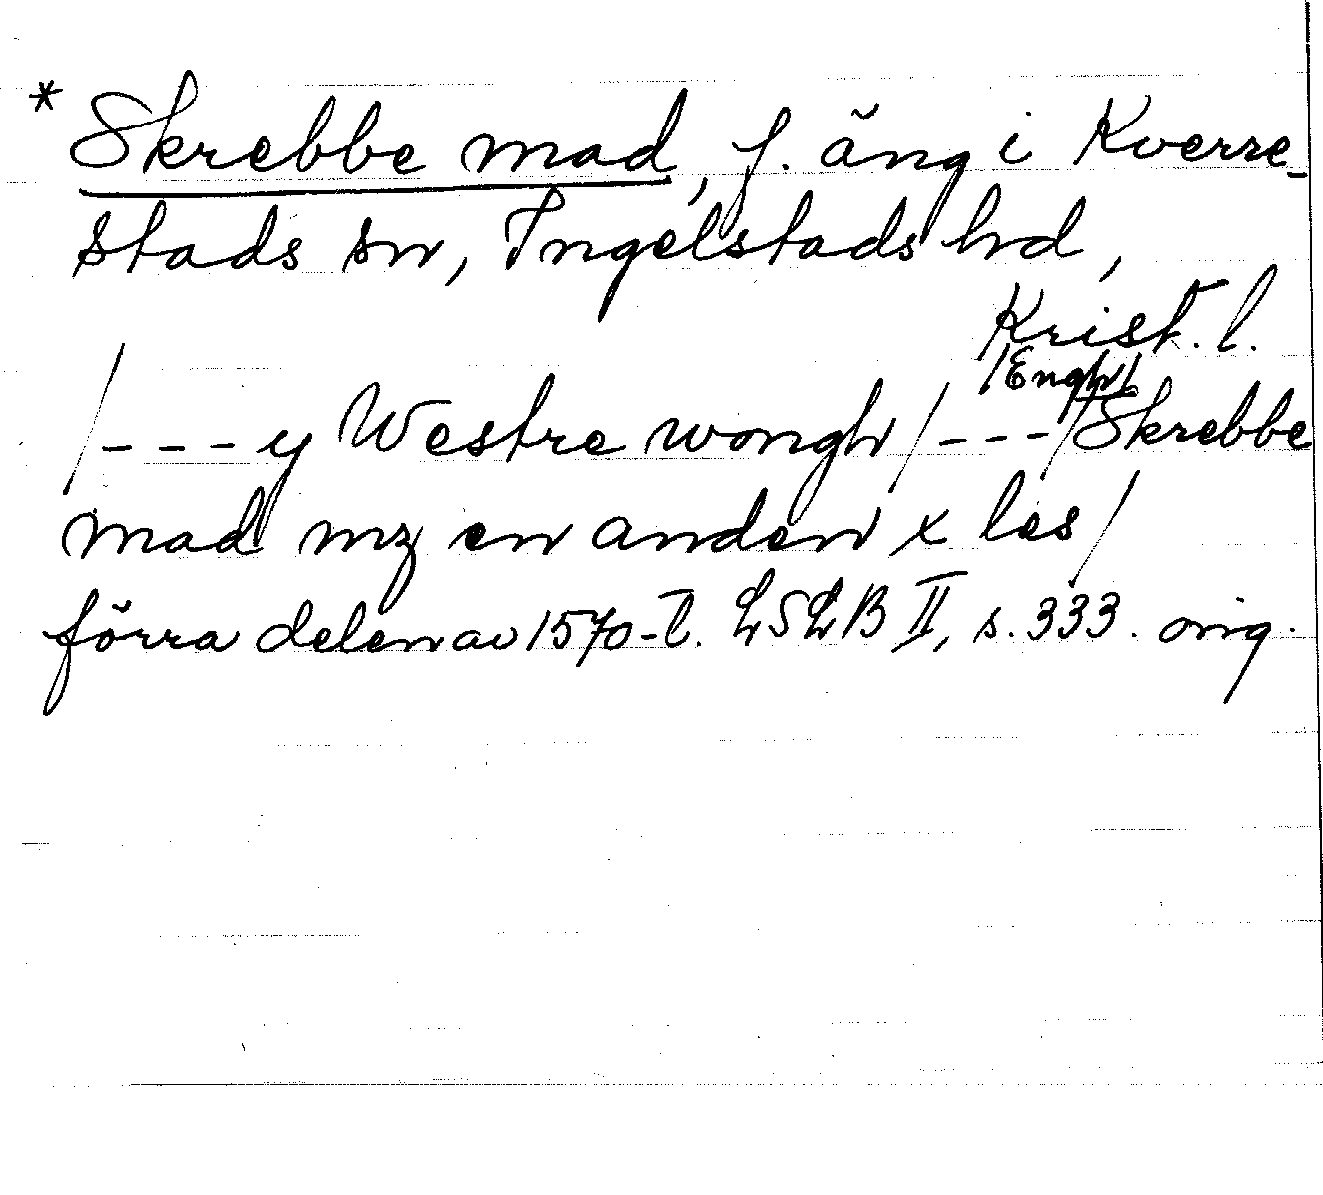 * Skrebbe mad, f. äng i Kverre-
stads sn, Ingelstads hd,
Krist. l.
/Engh/
/---y Westre wongh/---/Skrebbe
mad mz en anden x les/
förra delen av 1570-t. LSLB II, s. 333. orig.